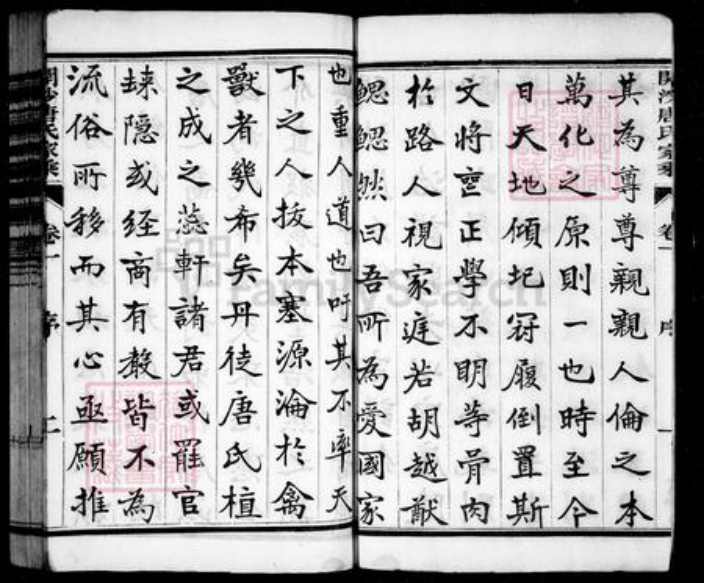 其為尊尊親親人倫之本
萬化之原則一也時至今
日天地傾圮冠履倒置斯
文將喪正學不明等骨肉
於路人視家庭若胡越猷
鰓鰓然曰吾所為愛國家
也重人道也吁其不率天
下之人拔本塞源淪於禽
獸者幾希矣丹徒唐氏植
之成之蕊軒諸君或罷官
歸隱或經商有穀皆不為
流俗所移而其心亟願推
開沙唐氏家乘
卷一
序
一
開沙唐氏家乘
卷一
序
二
FamilySearch